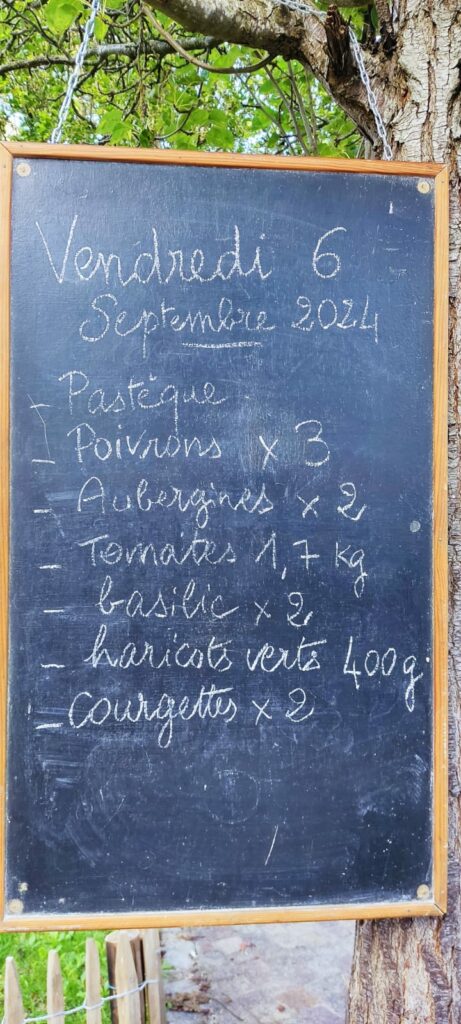 Vendredi 6
Septembre 2024
- Pastèque
- Poivrons x 3
- Aubergines x 2
- Tomates 1,7 kg
- basilic x 2
- haricots verts 400g
- courgettes x 2